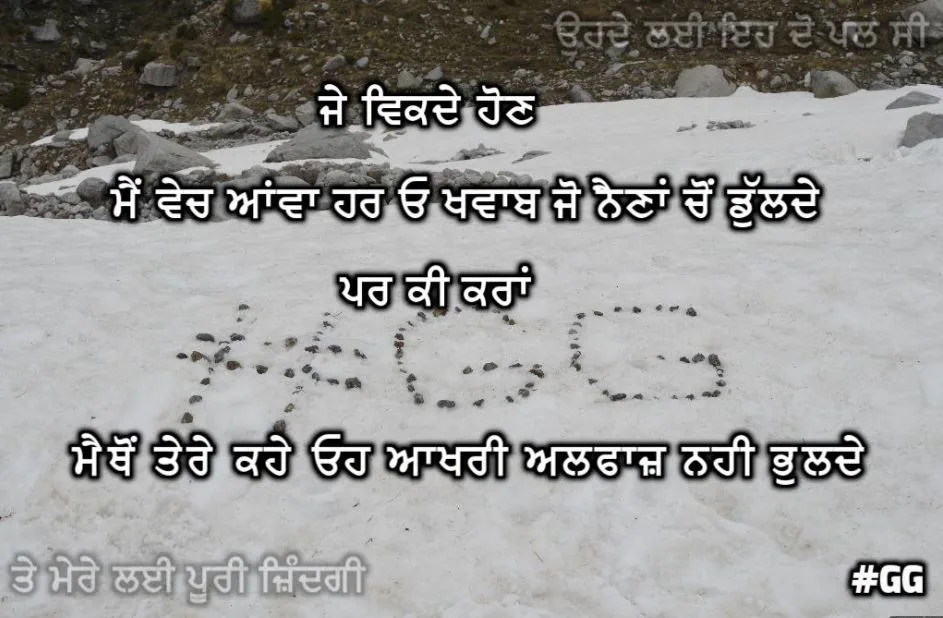 ਓਹਦੇ ਲਈ ਇਹ ਦੋ ਪਲ ਸੀ
ਜੇ ਵਿਕਦੇ ਹੋਣ
ਮੈਂ ਵੇਚ ਆਂਵਾ ਹਰ ਓ ਖਵਾਬ ਜੋ ਨੈਣਾਂ ਚੋਂ ਡੁੱਲਦੇ
ਪਰ ਕੀ ਕਰਾਂ
#GG
ਮੈਥੋਂ ਤੇਰੇ ਕਹੇ ਓਹ ਆਖਰੀ ਅਲਫਾਜ਼ ਨਹੀ ਭੁਲਦੇ
ਤੇ ਮੇਰੇ ਲਈ ਪੂਰੀ ਜ਼ਿੰਦਗੀ
#GG